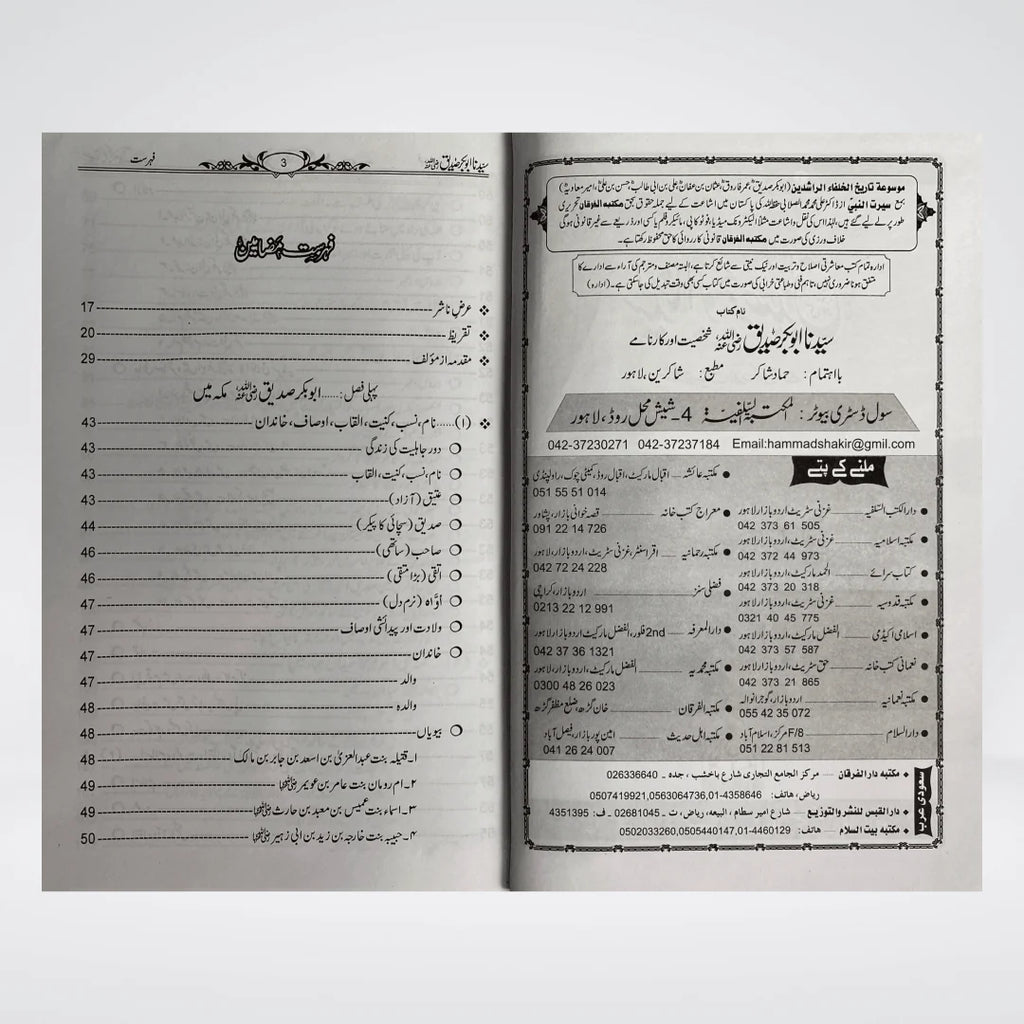 موسوعة تاريخ الخلفاء الراشدين (ابوبکر صدیق، عمر فاروق، عثمان بن عفان، علی بن ابی طالب، حسن بن علی، امیر معاویہ)
بمع سیرت النبیؐ از ڈاکٹر علی محمد محمد الصلابی حفظہ اللہ کی پاکستان میں اشاعت کے لیے جملہ حقوق بحق مکتبہ الفرقان تحریری
طور پر لے لیے گئے ہیں، لہٰذا اس کی نقل و اشاعت مثلاً الیکٹرونک میڈیا، فوٹو کاپی، مائیکروفلم یا کسی اور ذریعے سے غیر قانونی ہوگی
خلاف ورزی کی صورت میں مکتبہ الفرقان قانونی کارروائی کا حق محفوظ رکھتا ہے۔
ادارہ تمام کتب معاشرتی اصلاح و تربیت اور نیک نیتی سے شائع کرتا ہے، البتہ مصنف و مترجم کی آراء سے ادارے کا
متفق ہونا ضروری نہیں، تاہم فنی و طباعتی خرابی کی صورت میں کتاب کسی بھی وقت تبدیل کی جاسکتی ہے۔ (ادارہ)
نام کتاب
سیّدنا ابوبکر صدیق رضی اللہ عنہ شخصیت اور کارنامے
بااہتمام: حماد شاکر مطبع: شاکرین، لاہور
سول ڈسٹری بیوٹر: المکتبۃ السّلفیۃ 4۔شیش محل روڈ، لاہور
042-37230271 042-37237184 Email:hammadshakir@gmil.com
ملنے کے پتے
● دارالکتب السّلفیہ ــــ غزنی سٹریٹ، اردو بازار لاہور
042 373 61 505
● مکتبہ اسلامیہ ــــ غزنی سٹریٹ، اردو بازار لاہور
042 372 44 973
● کتاب سرائے ــــ الحمد مارکیٹ، اردو بازار لاہور
042 373 20 318
● مکتبہ قدوسیہ ــــ غزنی سٹریٹ، اردو بازار لاہور
0321 40 45 775
● اسلامی اکیڈمی ــــ الفضل مارکیٹ، اردو بازار لاہور
042 373 57 587
● نعمانی کتب خانہ ــــ حق سٹریٹ، اردو بازار لاہور
042 373 21 865
● مکتبہ نعمانیہ ــــ اردو بازار، گوجرانوالہ
055 42 35 072
● دارالسلام ــــ F/8 مرکز، اسلام آباد
051 22 81 513
● مکتبہ عائشہ ــــ اقبال مارکیٹ، اقبال روڈ، کمیٹی چوک، راولپنڈی
051 55 51 014
● معراج کتب خانہ ــــ قصہ خوانی بازار، پشاور
091 22 14 726
● مکتبہ رحمانیہ ــــ اقراسنٹر، غزنی سٹریٹ، اردو بازار، لاہور
042 72 24 228
● فضلی سنز ــــ اردو بازار، کراچی
0213 22 12 991
● دارالمعرفہ ــــ 2nd فلور، الفضل مارکیٹ اردو بازار لاہور
042 37 36 1321
● مکتبہ محمدیہ ــــ الفضل مارکیٹ، اردو بازار، لاہور
0300 48 26 023
● مکتبہ الفرقان ــــ خان گڑھ، ضلع مظفر گڑھ
● مکتبہ اہل حدیث ــــ امین پور بازار، فیصل آباد
041 26 24 007
سعودی عرب
● مکتبہ دار الفرقان ۔ مرکز الجامع التجاری شارع باخشب، جدہ ۔ 026336640
ریاض، ہاتف: 0507419921,0563064736,01-4358646
● دار القبس للنشر والتوزیع ۔ شارع امیر سطام، البیعہ، ریاض، ت ۔ 02681045 ۔ ف: 4351395
● مکتبہ بیت السلام ۔ ہاتف: 0502033260,0505440147,01-4460129
سیّدنا ابوبکر صدیق رضی اللہ عنہ 3 فہرست
فہرست مضامین
❖ عرض ناشر 17
❖ تقریظ 20
❖ مقدمہ از مؤلف 29
پہلی فصل:...... ابوبکر صدیق رضی اللہ عنہ مکہ میں
❖ (۱)...... نام، نسب، کنیت، القاب، اوصاف، خاندان 43
○ دور جاہلیت کی زندگی 43
○ نام، نسب، کنیت، القاب 43
○ عتیق (آزاد) 43
○ صدیق (سچائی کا پیکر) 44
○ صاحب (ساتھی) 46
○ اتقی (بڑا متقی) 46
○ اوّاہ (نرم دل) 47
○ ولادت اور پیدائشی اوصاف 47
○ خاندان 47
والد 47
والدہ 48
○ بیویاں 48
۱۔ قتیلہ بنت عبدالعزیٰ بن اسعد بن جابر بن مالک 48
۲۔ ام رومان بنت عامر بن عویمر رضی اللہ عنہا 49
۳۔ اسماء بنت عمیس بن معبد بن حارث رضی اللہ عنہا 49
۴۔ حبیبہ بنت خارجہ بن زید بن ابی زہیر رضی اللہ عنہا 50